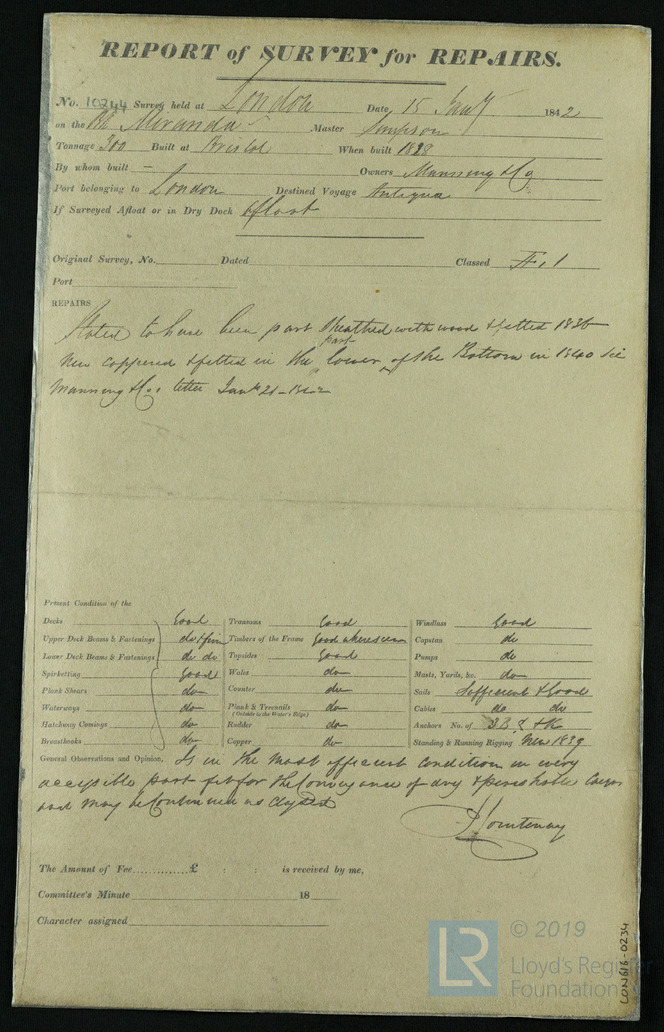 REPORT of SURVEY for REPAIRS.
No. 10244 Survey held at London Date, 15 Jany 1842
on the Bk Miranda Master Simpson
Tonnage 300 Built at Bristol When built 1828
By whom built — Owners Manning & Co
Port belonging to London Destined Voyage Antigua
If Surveyed Afloat or in Dry Dock Afloat
Original Survey, No. Dated Classed Æ 1
Port
REPAIRS
Stated to have been part sheathed with wood & felted 1836
New coppered & felted in the lower part of the Bottom in 1840 see
Manning & Co's letter Jany 21 - 1842
Present Condition of the
Decks Good Transoms Good Windlass Good
Upper Deck Beams & Fastenings do & firm Timbers of the Frame Good where seen Capstan do
Lower Deck Beams & Fastenings do do Topsides Good Pumps do
Spirketting Good Wales do Masts, Yards, &c. do
Plank Shears do Counter do Sails Sufficient & Good
Waterways do Plank & Treenails (Outside to the Water's Edge) do Cables do do
Hatchway Comings do Rudder do Anchors No. of 3 B, S & K
Breasthooks do Copper do Standing & Running Rigging New 1839
General Observations and Opinion, Is in the most efficient condition in every
accessible part fit for the Conveyance of dry & perishable Cargo
and may be Continued as Classed
Courtenay
The Amount of Fee..............£ : : is received by me,
Committee's Minute 18
Character assigned
LR © 2019
Lloyd's Register
Foundation
LON616-0234